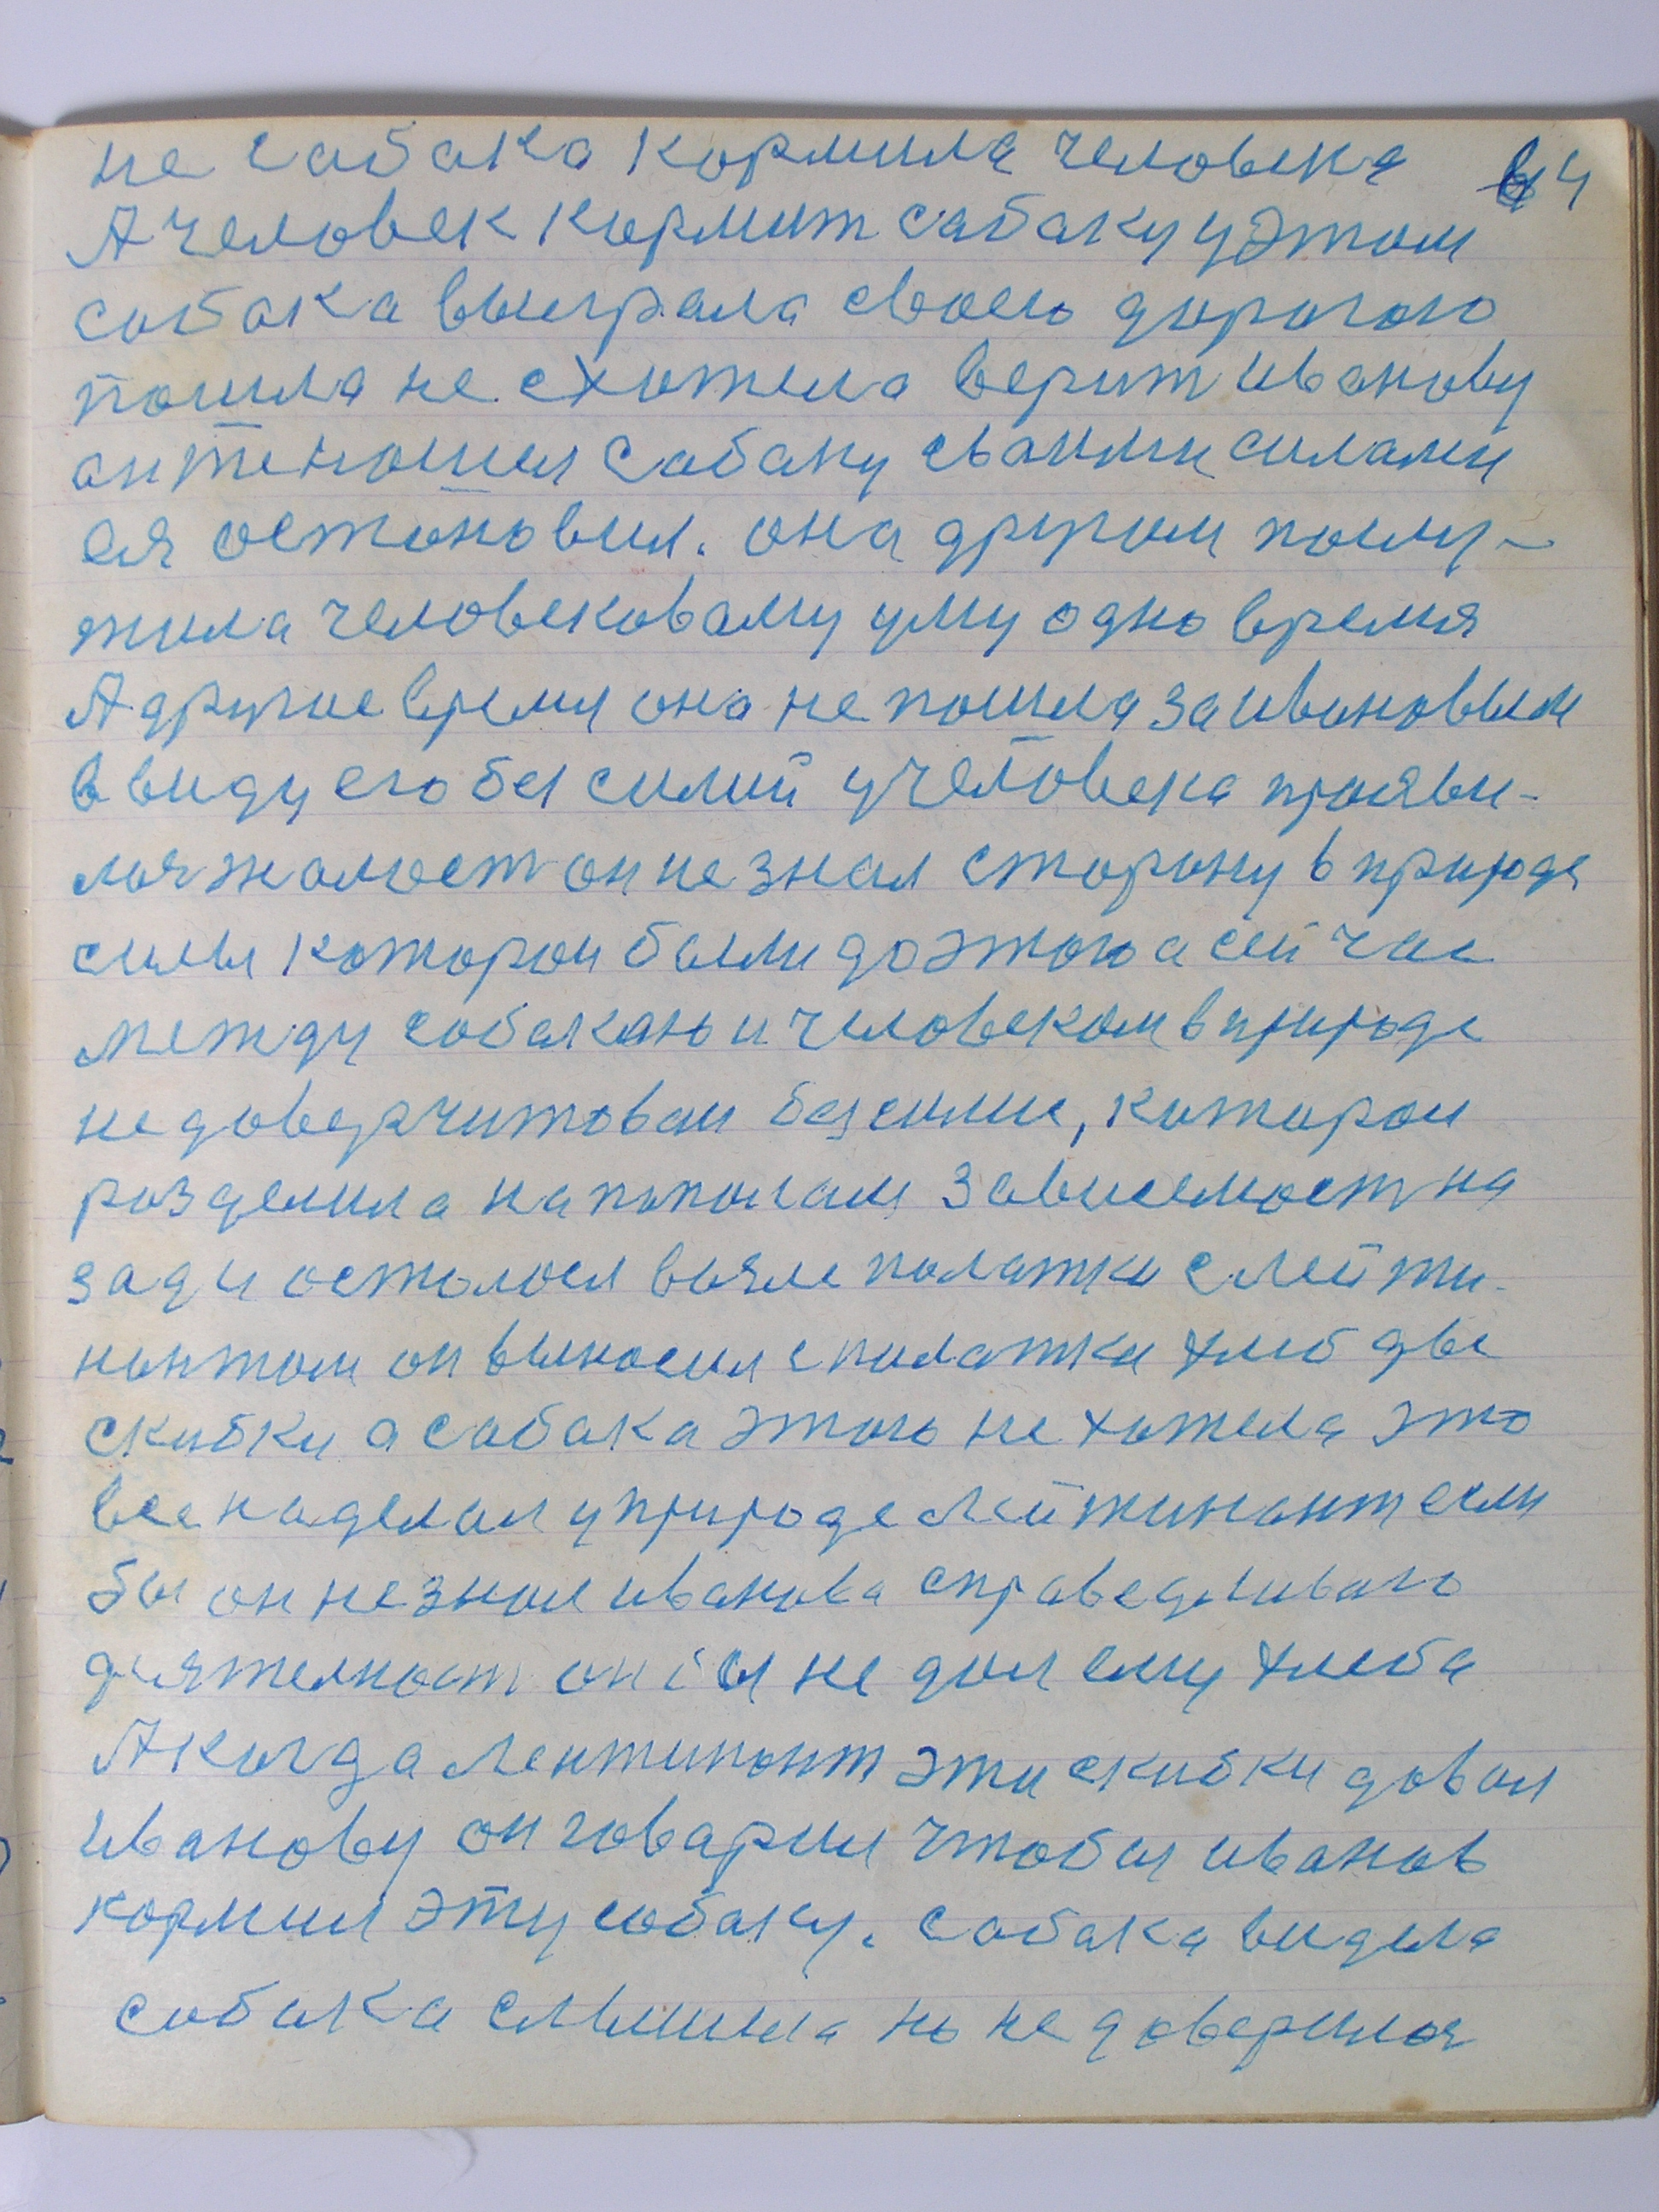 не сабака кормила человека 64
А человек кормит сабаку у этом
собака выиграла своею дорогою
пошла не схотела верит иванову
он теношил сабаку сваими силами
ея остоновил. она другом послу-
жила человековаму уму одно время
А другое время она не пошла за ивановым
ввиду его бессилий у человека прояви-
лося жалост он не знал сторону в природе
силы которои были до этого а сей час
между собакаю и человеком в природе
недоведрчитоваи безсилие, котораи
розделила на пополам зависемост на
зади осталося возле полатки с лейти-
нонтом он выносил с полатки хлеб две
скибки а сабака этого не хотела это
все наделал у природе лейтинонт если
бы он не знал иванова справедливаго
деятелност он бы не дал ему хлеба
А когда лентинонт эти скибки довал
иванову он говарил чтобы иванов
кормил эту собаку. сабака видела
собака слышила но не доверилоя